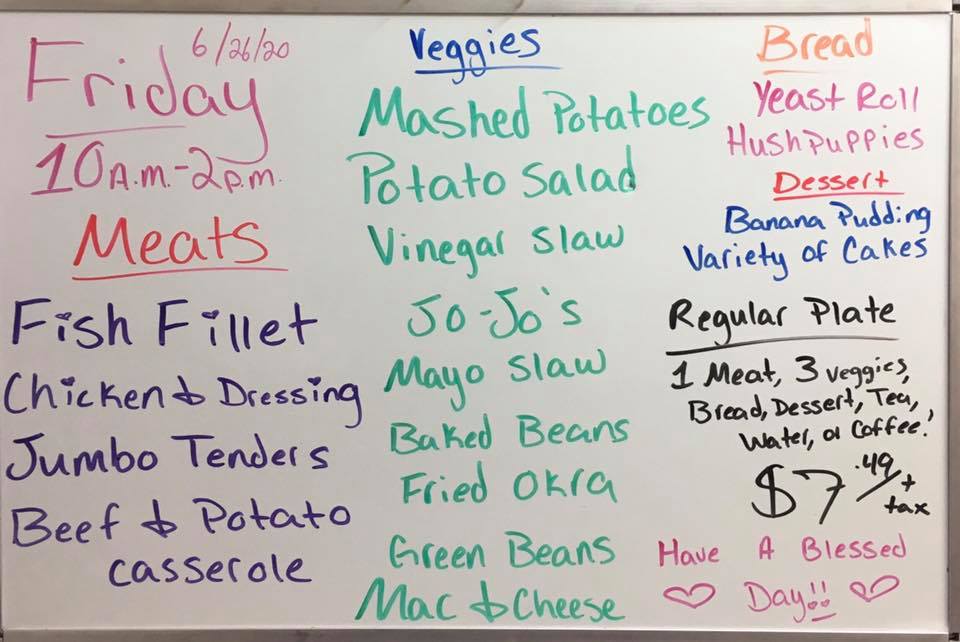 Friday 6/26/20
10A.M.-2P.M.
Meats
Fish Fillet
Chicken & Dressing
Jumbo Tenders
Beef & Potato
casserole
Veggies
Mashed Potatoes
Potato Salad
Vinegar Slaw
Jo-Jo's
Mayo Slaw
Baked Beans
Fried Okra
Green Beans
Mac & Cheese
Bread
Yeast Roll
Hushpuppies
Dessert
Banana Pudding
Variety of Cakes
Regular Plate
1 Meat, 3 veggies,
Bread, Dessert, Tea,
Water, or Coffee!
$7.49 + tax
Have A Blessed
Day!!